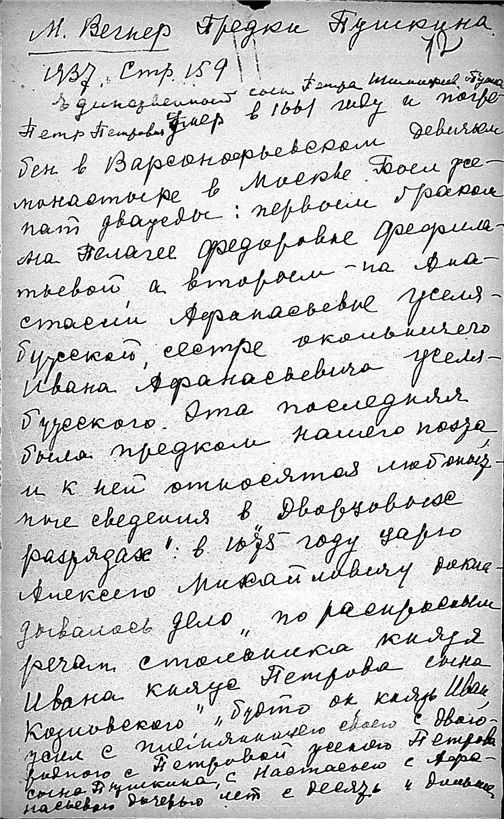 М. Вегнер Предки Пушкина.
12
1937. Стр. 159
Единственной сын Петра
Петр Петрович умер в 1661 году и погре-
бен в Варсонофьевском девичьем
монастыре в Москве. Был же-
нат дважды: первым браком
на Пелагее Федоровне Фефила-
тьевой а вторым – на Ана-
стасии Афанасьевне Желя-
бужской, сестре окольничего
Ивана Афанасьевича Желя-
бужского. Эта последняя
была предком нашего поэта
и к ней относятся любопыт-
ные сведения в Дворцовых
разрядах": в 1675 году царю
Алексею Михайловичу докла-
дывалось дело „по распросным
речам стольника князя
Ивана княж Петрова сына
Козловского" „будто он, князь Иван
жил с племянницею своею с двою-
родною с Петровой женою Петрова
сына Пушкина, с Настасьею с Афа-
насьевою дочерью лет с десять и больше